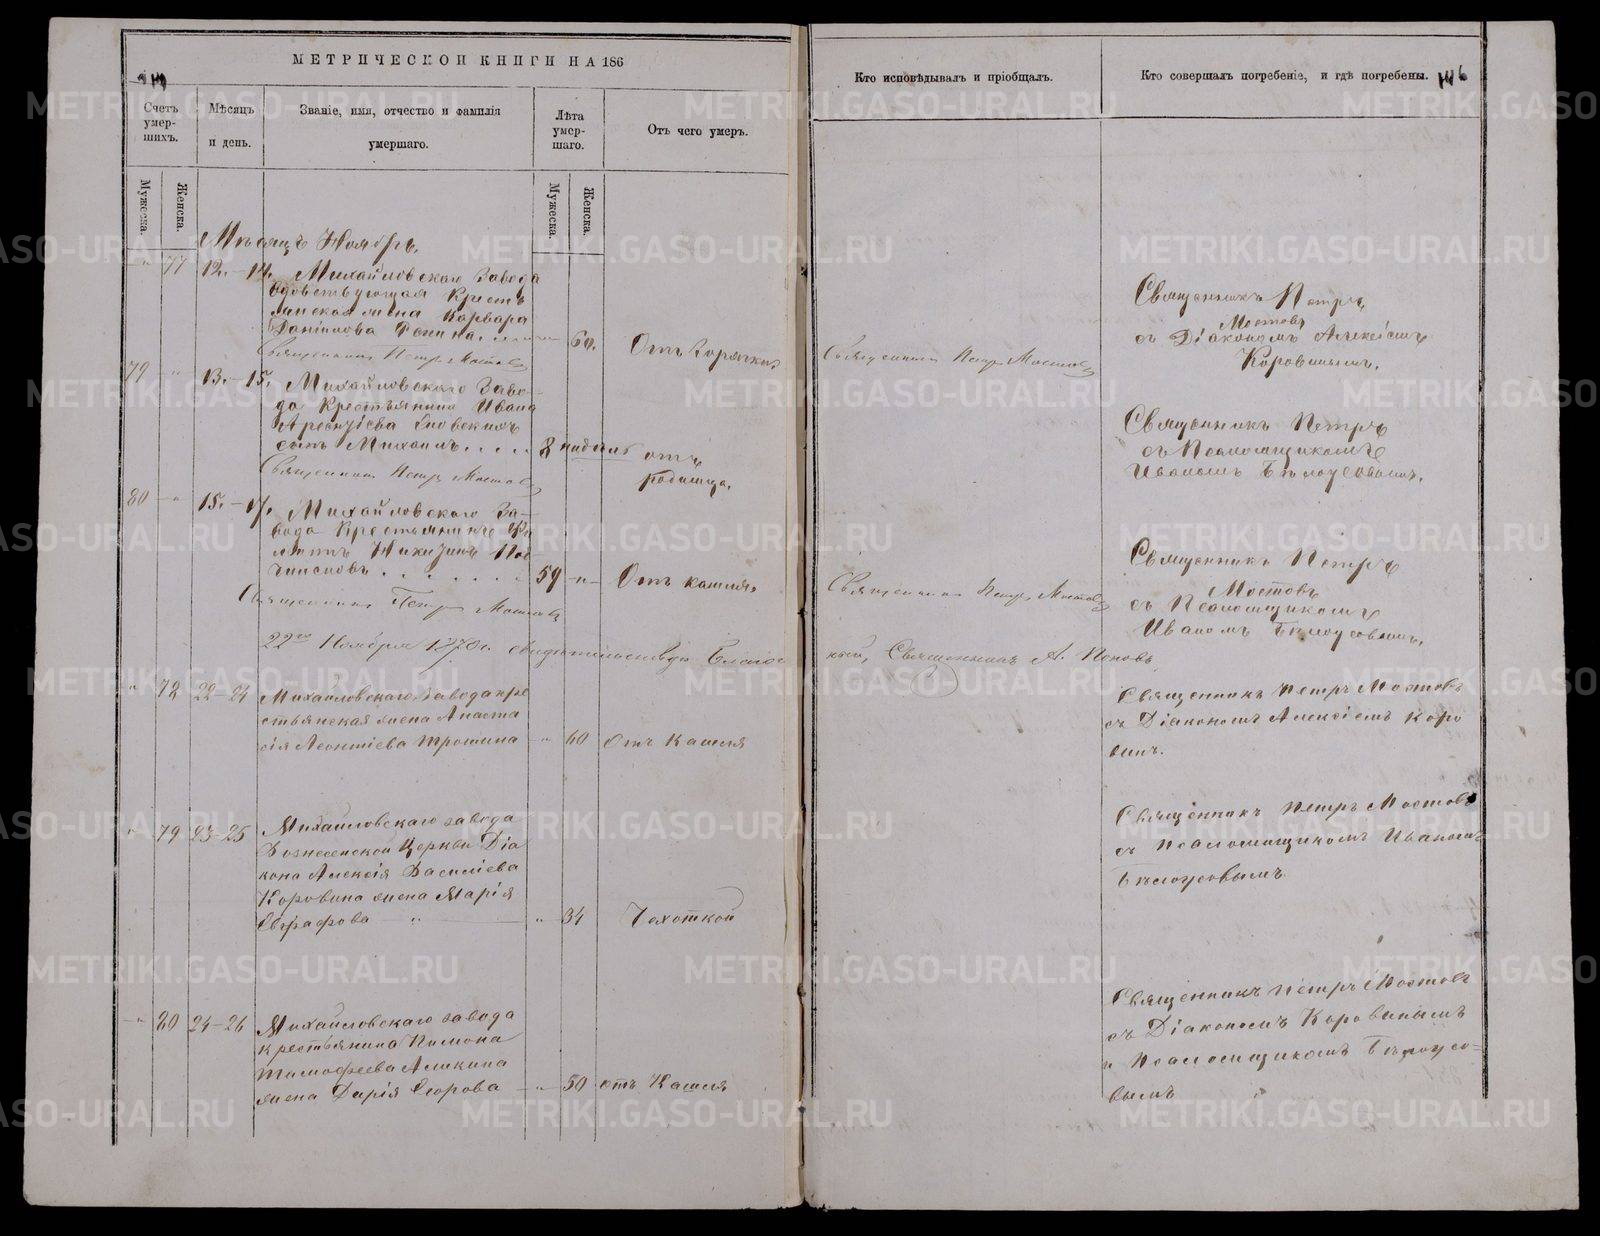 МЕТРИЧЕСКОЙ КНИГИ НА 186
Счетъ умер-шихъ.
Мѣсяцъ и день.
Званіе, имя, отчество и фамилія умершаго.
Лѣта умер-шаго.
Отъ чего умеръ.
Кто исповѣдывалъ и пріобщалъ.
Кто совершалъ погребеніе, и гдѣ погребены.
146
Мужеска.
Женска.
Мужеска.
Женска.
Мѣсяцъ Ноябрь.
77 12.–14. Михайловскаго Завода
вдовствующая Кресть
янская жена Варвара
Даніилова 60. Отъ Горячки
Священникъ Петръ Мостовъ
Священникъ Петръ Мостовъ
Священникъ Петръ
Мостовъ
съ Діакономъ Алексіемъ
Коровинымъ.
79 13.–15. Михайловскаго Заво-
да Крестьянина Ивана
сынъ Михаилъ. 2 недѣль отъ
родимца.
Священникъ Петръ Мостовъ
Священникъ Петръ
съ Псаломщикомъ
Иваномъ Бѣлоусовымъ.
80 15.–17. Михайловскаго За-
вода Крестьянинъ
59 Отъ кашля.
Священникъ Петръ Мостовъ
Священникъ Петръ Мостовъ
Священникъ Петръ
Мостовъ
съ Псаломщикомъ
Иваномъ Бѣлоусовымъ.
22го Ноября 1870г. свидѣтельствовалъ Благочин
ный, Священникъ А. Поповъ
78 22–24 Михайловскаго Завода кре
стьянская жена Анаста
сія Леонтіева Трошина 60 Отъ Кашля
Священникъ Петръ Мостовъ
съ Діакономъ Алексіемъ Коро
вин.
79 23–25 Михайловскаго завода
Вознесенской Церкви Діа
кона Алексія Василіева
Коровина жена Марія
Евграфова 34 Чахоткой
Священникъ Петръ Мостовъ
съ Псаломщикомъ Иваномъ
Бѣлоусовымъ
80 24–26 Михайловскаго завода
крестьянина Пимона
Тимофеева Аликина
жена Дарія Егорова 50 отъ Кашля
Священникъ Петръ Мостовъ
съ Діакономъ Коровинымъ
и Псаломщикомъ Бѣлоусо-
вымъ
METRIKI.GASO-URAL.RU